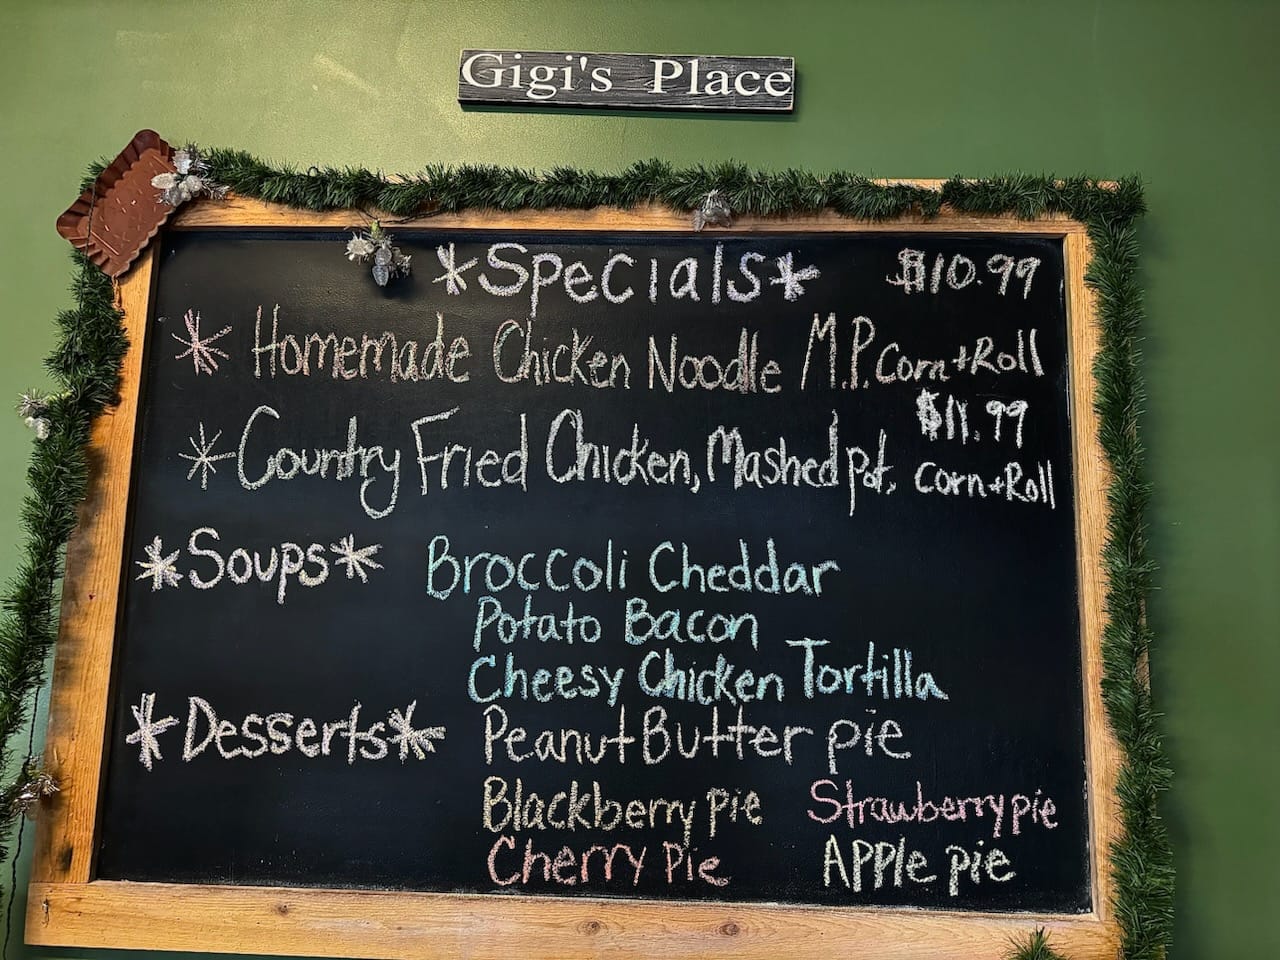 Gigi's Place
*Specials* $10.99
* Homemade Chicken Noodle M.P. Corn + Roll
$11.99
* Country Fried Chicken, Mashed pot, corn + Roll
*Soups* Broccoli Cheddar
Potato Bacon
Cheesy Chicken Tortilla
*Desserts* Peanut Butter pie
Blackberry pie Strawberry pie
Cherry Pie Apple pie